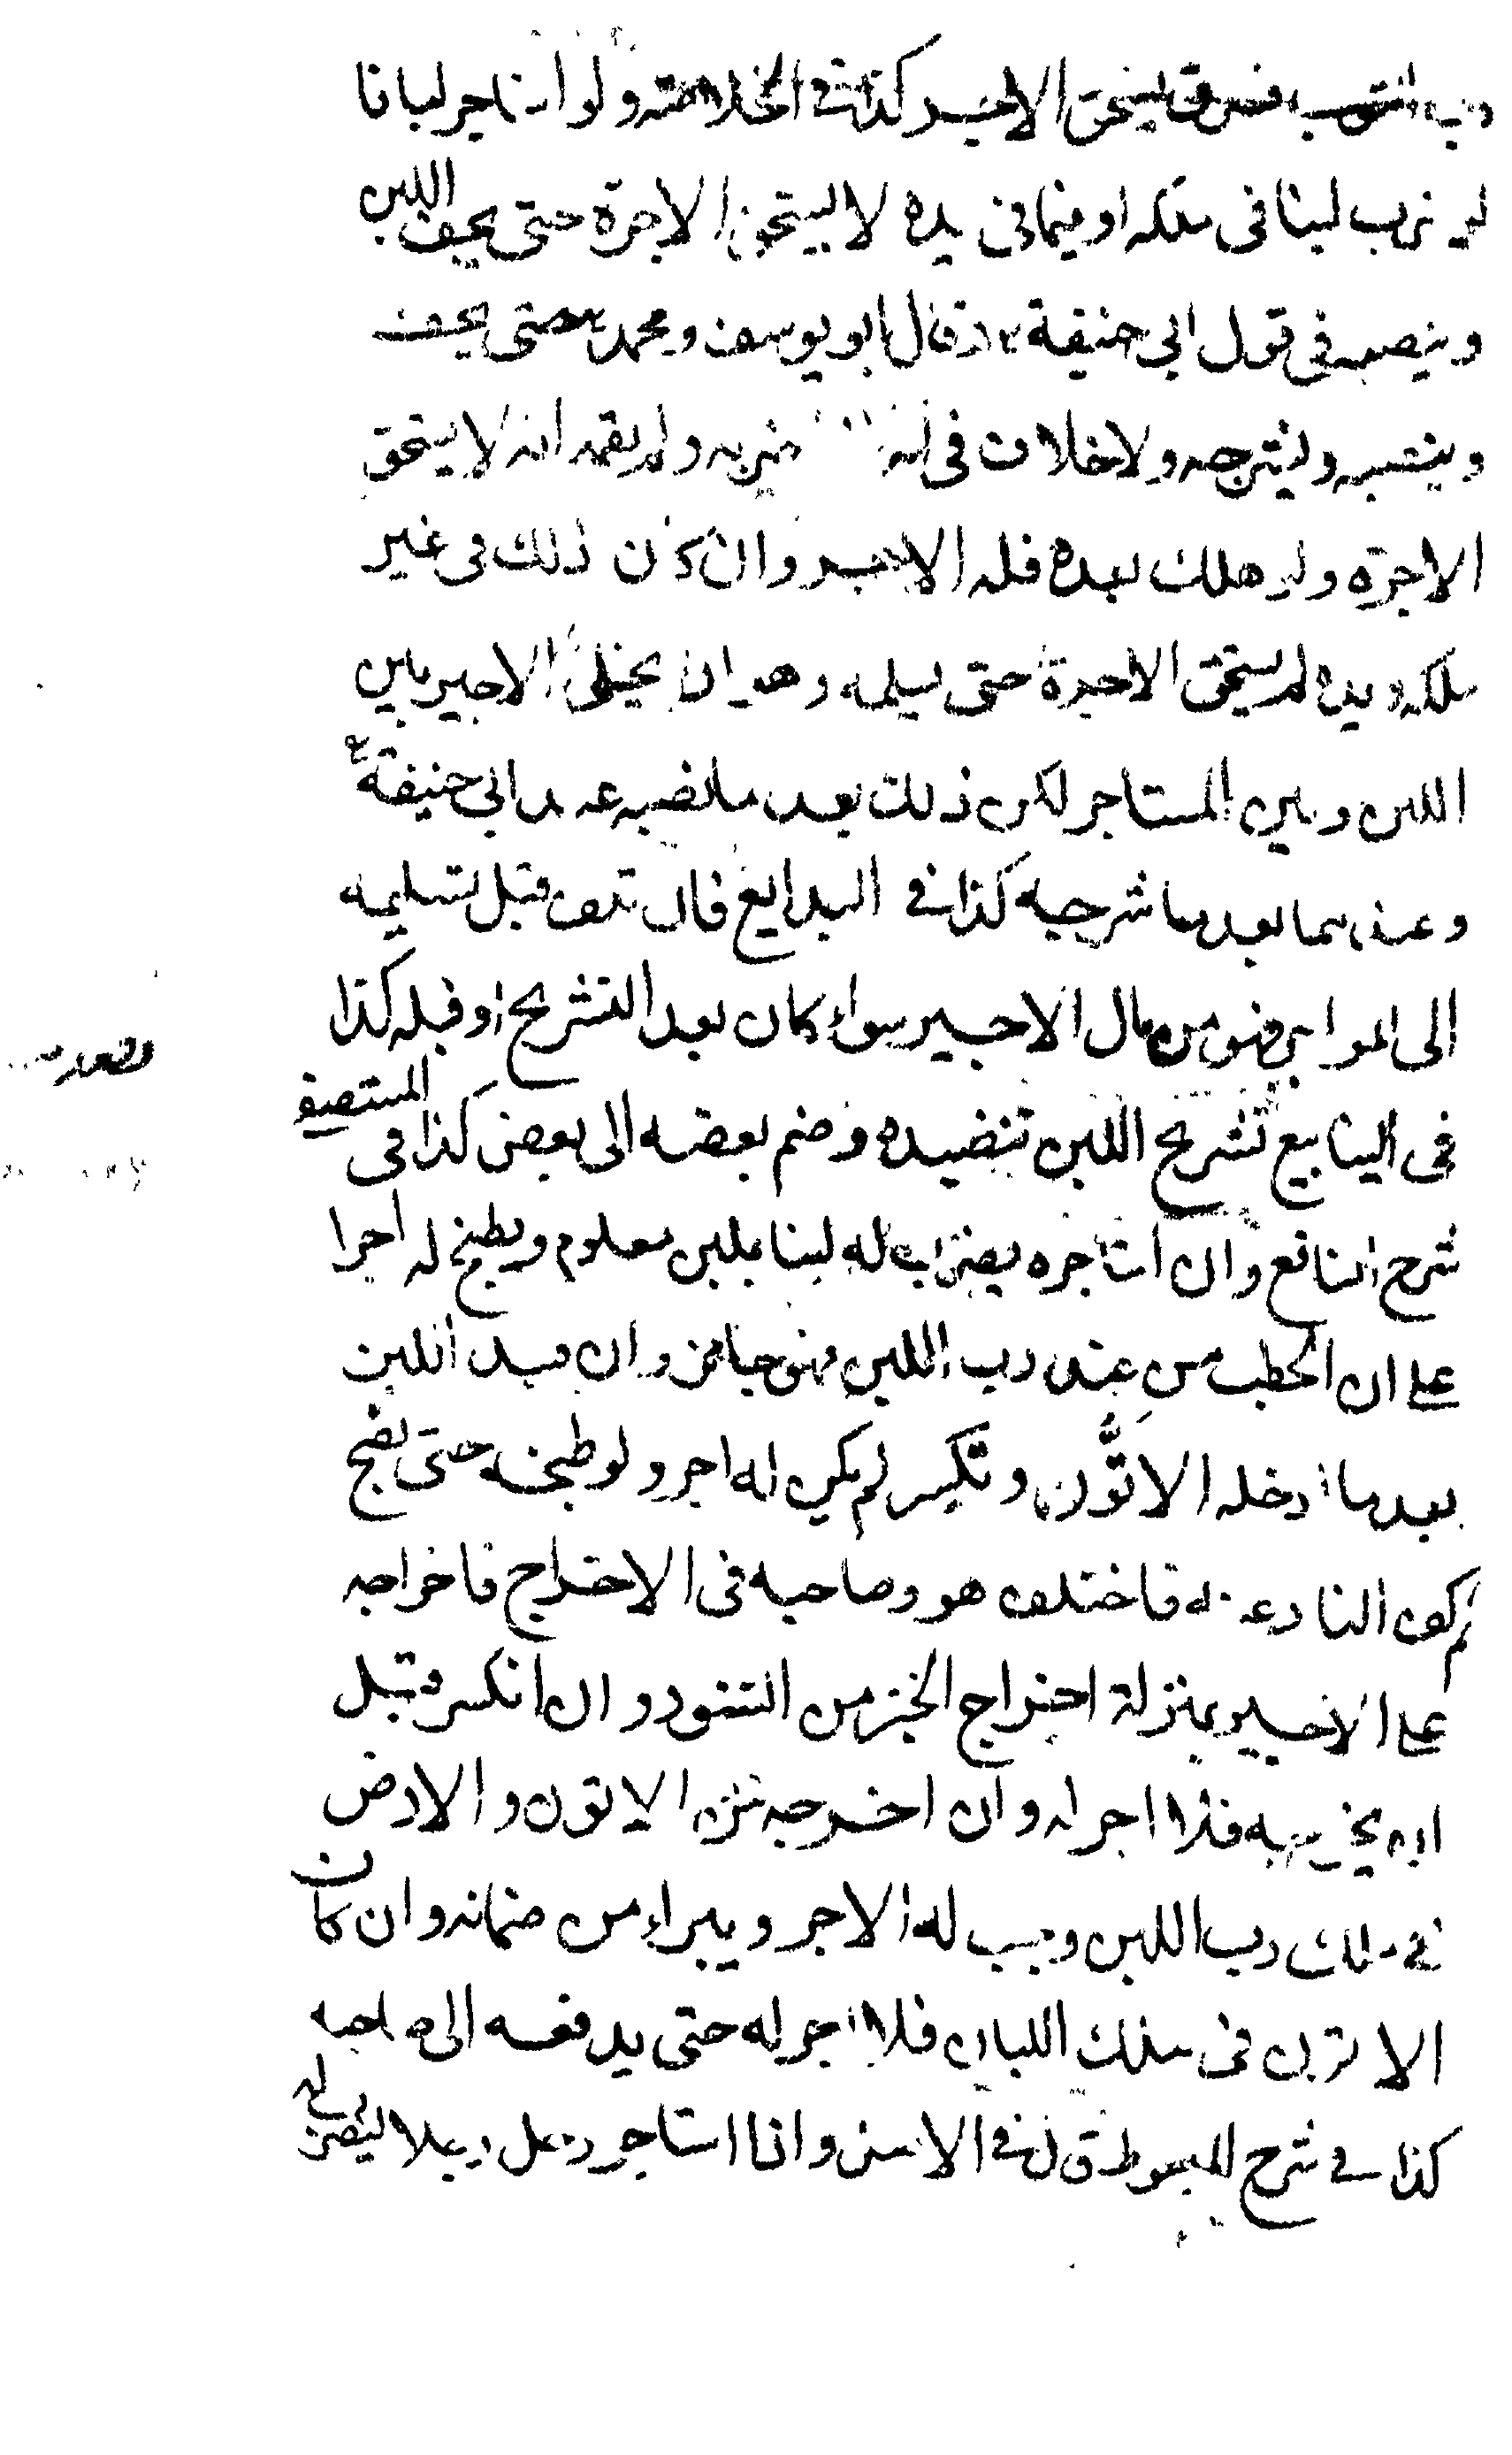 فيستحق الاجر كذا في الخلاصة ولو استاجر لبانا
ليضرب لبنا في ملكه او فيما في يده لا يستحق الاجرة حتى يجف اللبن
وينصبه في قول ابي حنيفة وقال ابو يوسف ومحمد حتى يجف
وينصبه ويشرجه ولا خلاف في انه ضربه ولم يقمه انه لا يستحق
الاجرة ولو هلك بعده فله الاجر وان كان ذلك في غير
ملكه ويده لم يستحق الاجرة حتى يسلمه وهو ان يخلى الاجير بين
اللبن وبين المستاجر لكن ذلك بعد ما نصبه عند ابي حنيفة
وعندهما بعد ما شرجه كذا في البدايع فان تلف قبل تسليمه
الى فهو من مال الاجير سواء كان بعد التشريج او قبله كذا
في الينابيع تشريج اللبن تنضيده وضم بعضه الى بعض كذا في المستصفى
شرح النافع وان استاجره يضرب له لبنا بملبن معلوم ويطبخ له اجرا
على ان الحطب من عند رب اللبن فهو جائز وان فسد اللبن
بعد ما ادخله الاتون وتكسر لم يكن له اجر ولو طبخه حتى نضج
ثم كف النار عنه فاختلف هو وصاحبه في الاخراج فاخراجه
على الاجير بمنزلة اخراج الخبز من التنور وان انكسر قبل
ان يخرجه فلا اجر له وان اخرجه من الاتون والارض
في ملك رب اللبن وجب له الاجر ويبراء من ضمانه وان كان
الاتون في ملك اللبان فلا اجر له حتى يدفعه الى صاحبه
كذا في شرح المبسوط قال في الاصل واذا استاجر رجل رجلا ليضرب له